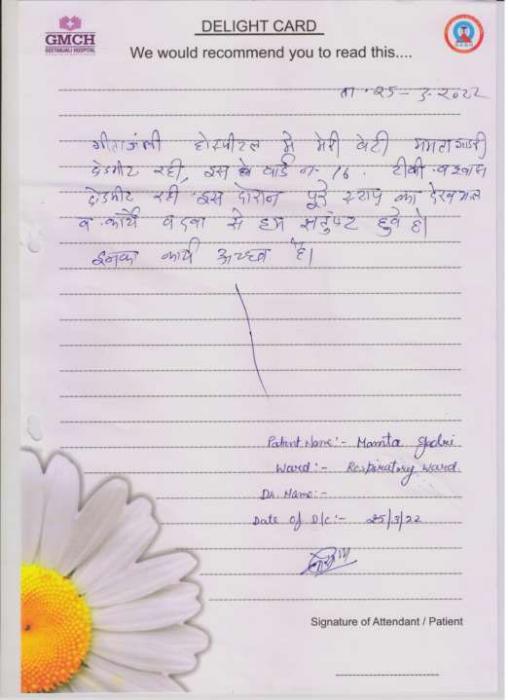 GMCH
GEETANJALI HOSPITAL
DELIGHT CARD
We would recommend you to read this....
ता. २५-३-२०२२
गीतांजली होस्पीटल मे मेरी बेटी ममता गाडरी
ऐडमीट रही, इस वार्ड न. 16. टीबी व श्वास
ऐडमीट रही इस दोरान पूरे स्टाफ का देखभाल
व कार्य से हम सतुंष्ट हुवे है।
इनका कार्य अच्छा है।
Patient Name:- Mamta Gadri
Ward:- Respiratory ward
Dr. Name:-
Date of D/c:- 25/3/22
Signature of Attendant / Patient